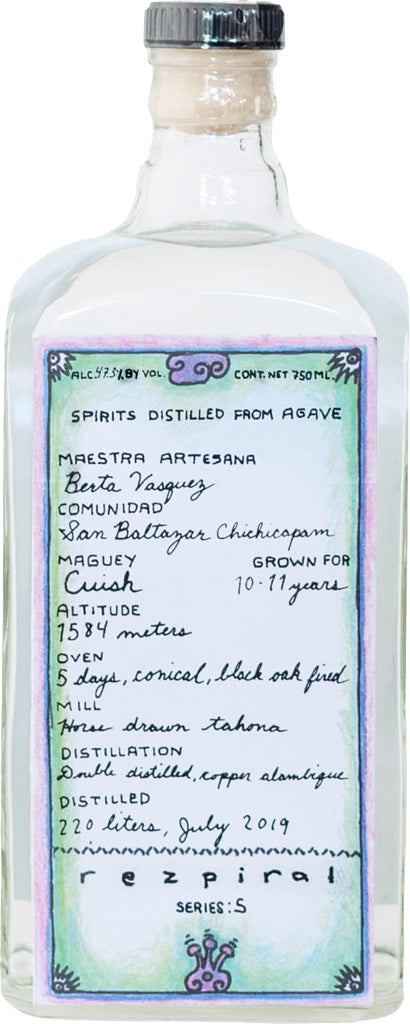 ALC.47.3% BY VOL. CONT. NET 750 ML.
SPIRITS DISTILLED FROM AGAVE
MAESTRA ARTESANA
Berta Vasquez
COMUNIDAD
San Baltazar Chichicapam
MAGUEY GROWN FOR
Cuish 10-11 years
ALTITUDE
1584 meters
OVEN
5 days, conical, black oak fired
MILL
Horse drawn tahona
DISTILLATION
Double distilled, copper alambique
DISTILLED
220 liters, July 2019
rezpiral
SERIES: S